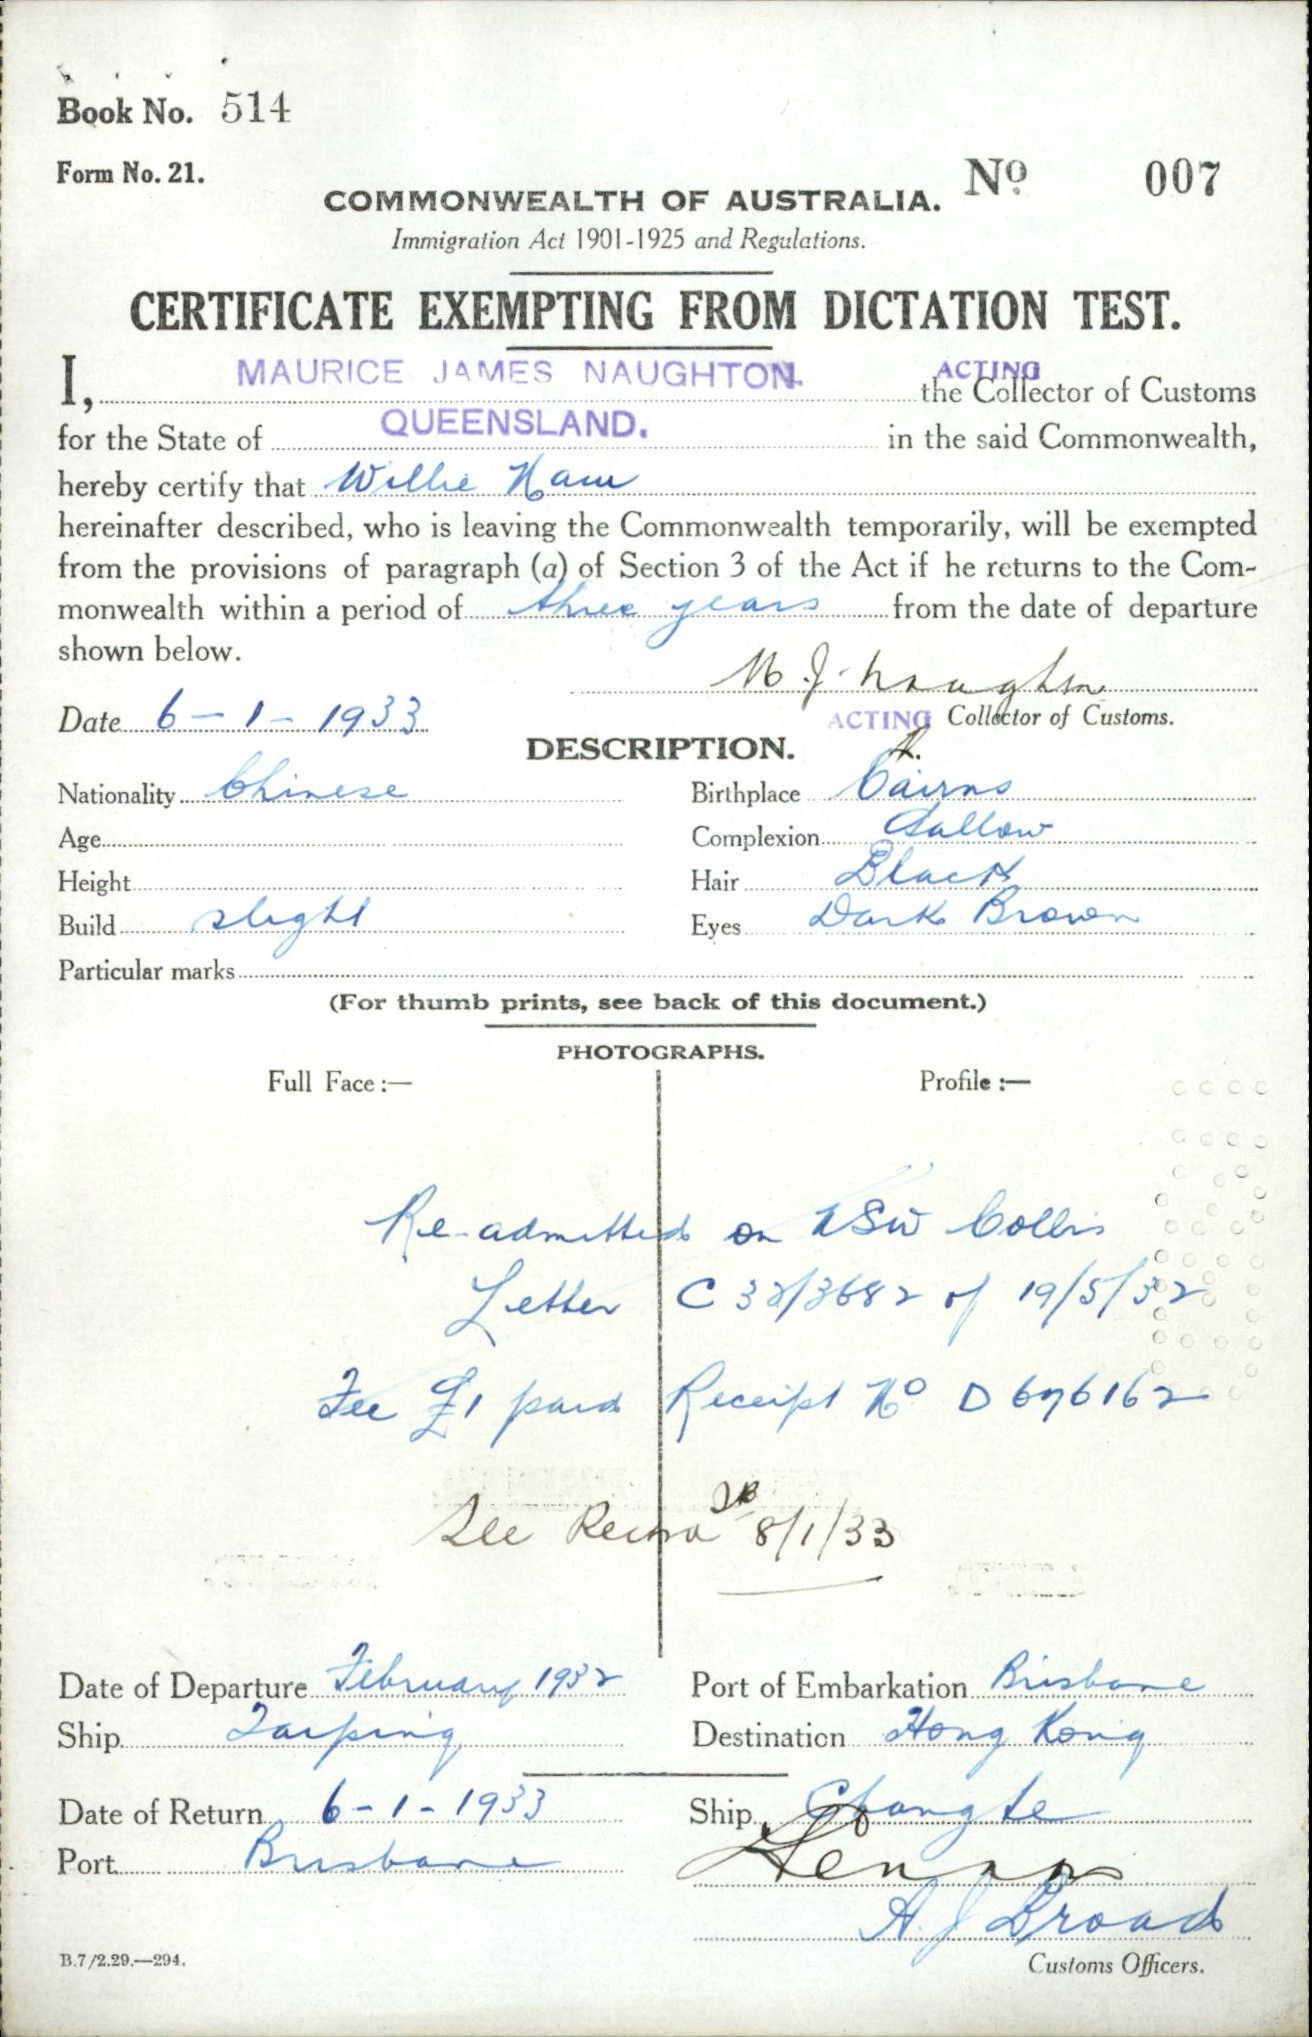 Book No. 514
Form No. 21.
No 007
COMMONWEALTH OF AUSTRALIA.
Immigration Act 1901-1925 and Regulations.
CERTIFICATE EXEMPTING FROM DICTATION TEST.
I, MAURICE JAMES NAUGHTON. ACTING the Collector of Customs
for the State of QUEENSLAND. in the said Commonwealth,
hereby certify that Willie Nam
hereinafter described, who is leaving the Commonwealth temporarily, will be exempted
from the provisions of paragraph (a) of Section 3 of the Act if he returns to the Com-
monwealth within a period of three years from the date of departure
shown below.
M. J. Naughton
Date 6-1-1933
ACTING Collector of Customs.
DESCRIPTION.
Nationality Chinese Birthplace Cairns
Age Complexion Sallow
Height Hair Black
Build slight Eyes Dark Brown
Particular marks
(For thumb prints, see back of this document.)
PHOTOGRAPHS.
Full Face :— Profile :—
Re-admitted on NSW Coll's
Letter C 32/3682 of 19/5/32
Fee £1 paid Receipt No D 696162
See 8/1/33
Date of Departure February 1932 Port of Embarkation Brisbane
Ship Taiping Destination Hong Kong
Date of Return 6-1-1933 Ship Changte
Port Brisbane
A. J. Broad
B.7/2.29.—294.
Customs Officers.